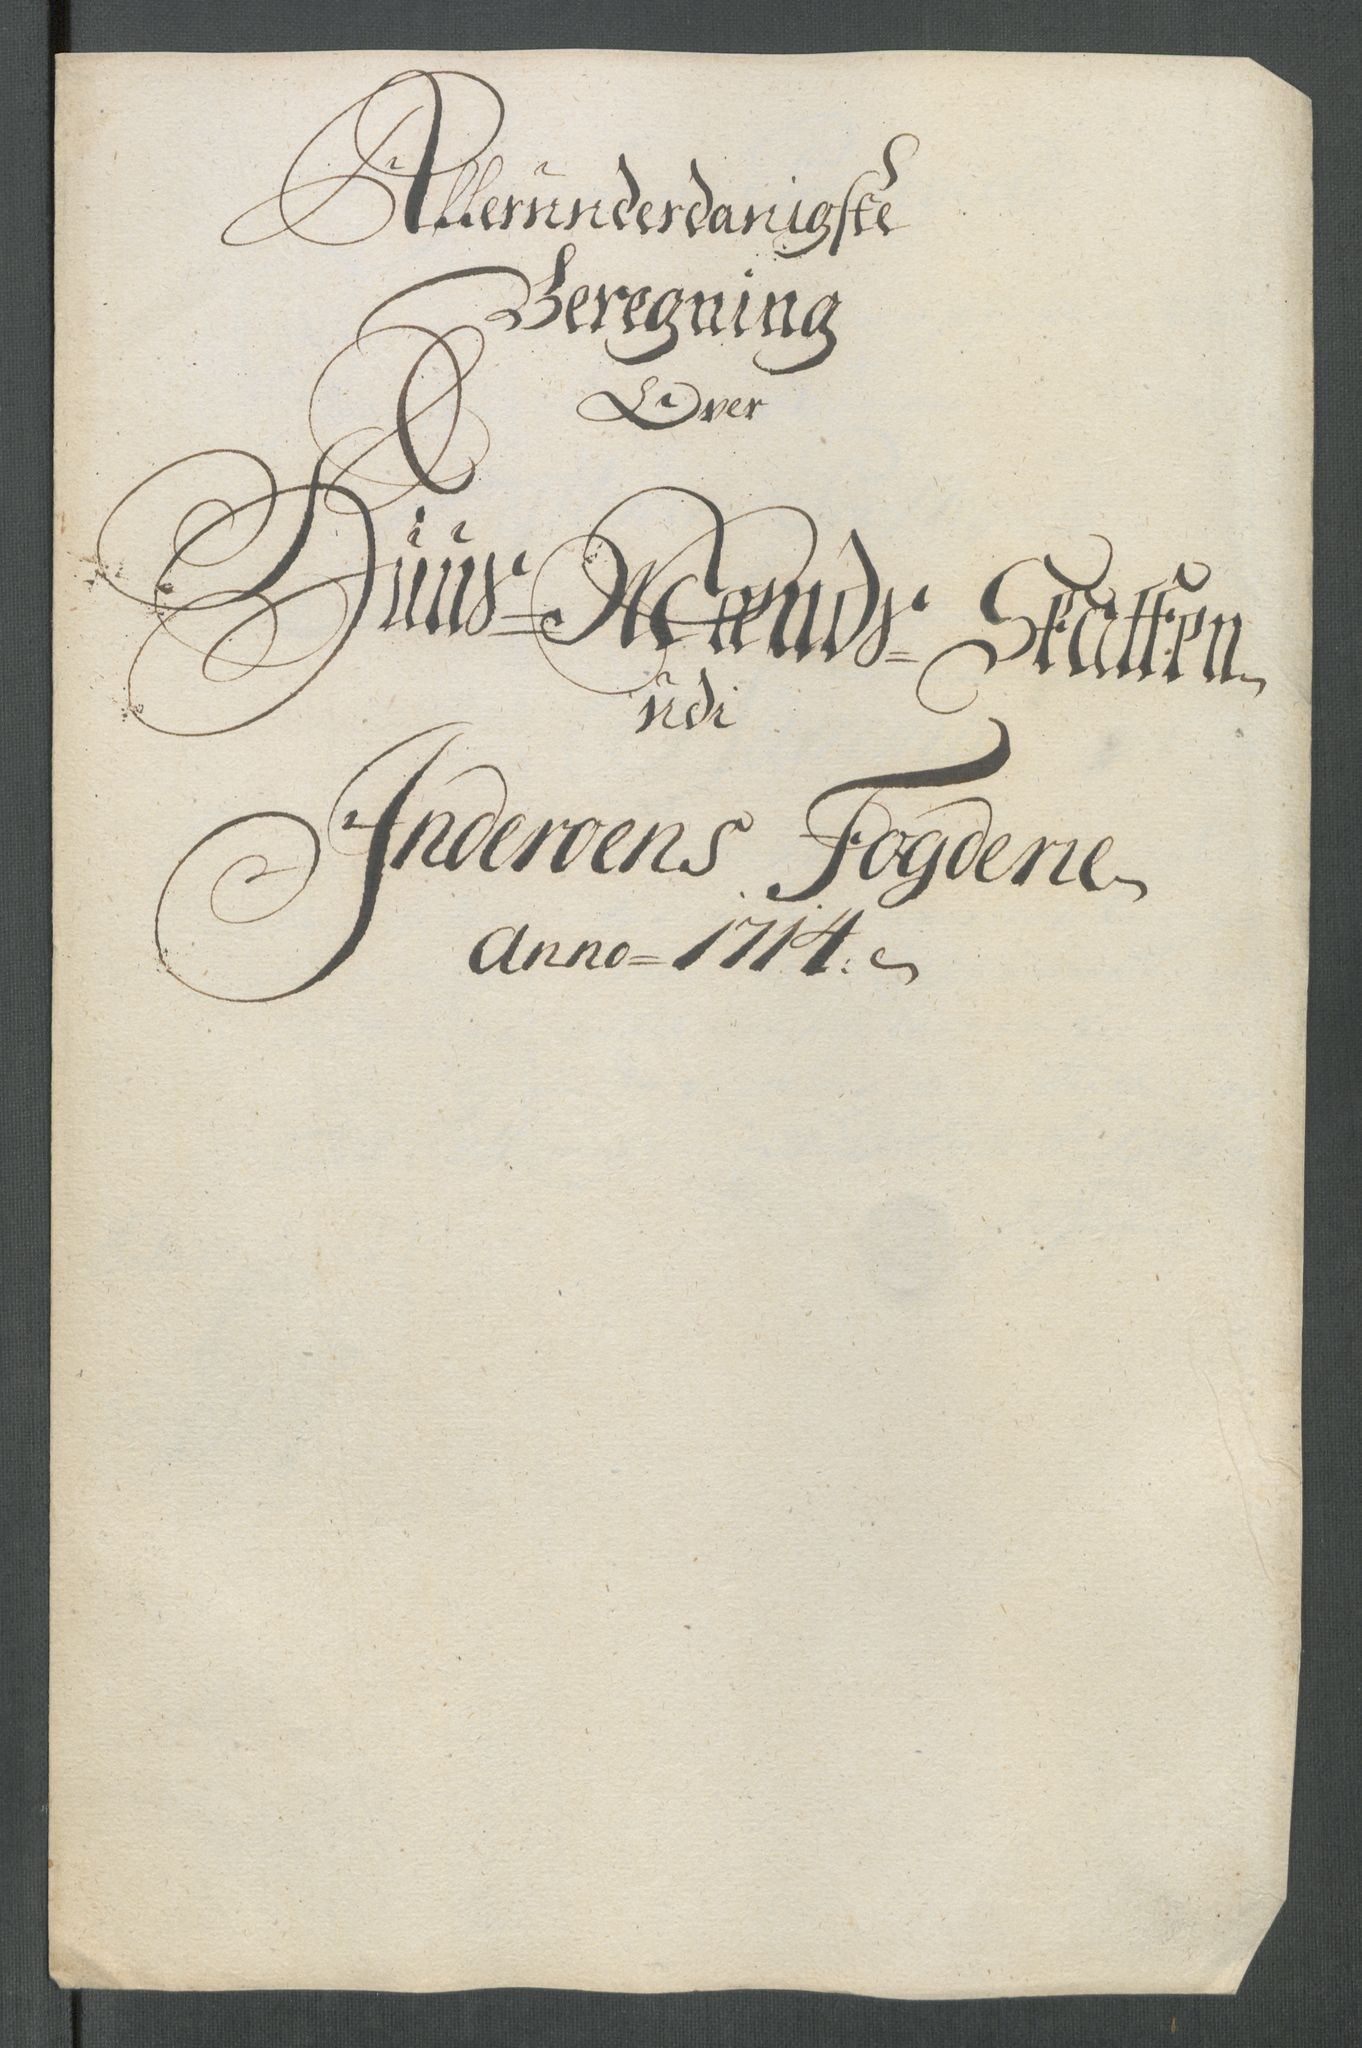 Allerunderdanigste
Beregning
Over
Huus-Mænds-Skatten
udi
Inderoens Fogderie
Anno-1714.